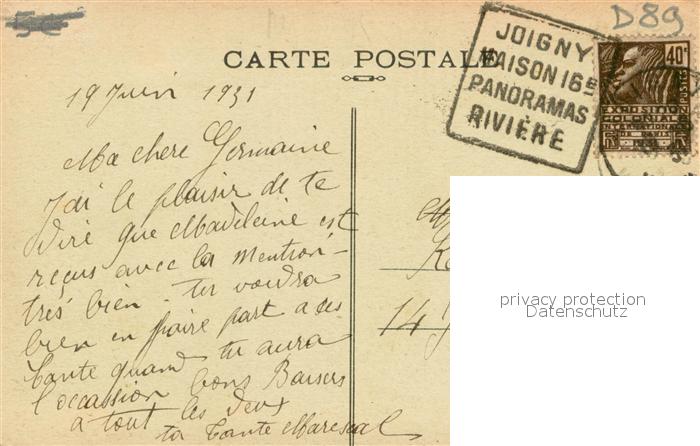 D89
CARTE POSTALE
JOIGNY
MAISON 16E
PANORAMAS
RIVIÈRE
40c
POSTES
EXPOSITION
COLONIALE
INTERNATIONALE
DE PARIS
19 Juin 1931
Ma chere Germaine
J'ai le plaisir de te
dire que Madeleine est
reçus avec la mention
très bien - tu voudra
bien en faire part a ces
tante quand tu aura
l'occassion bons Baisers
a tout les deux
ta tante Marescal
14
privacy protection
Datenschutz